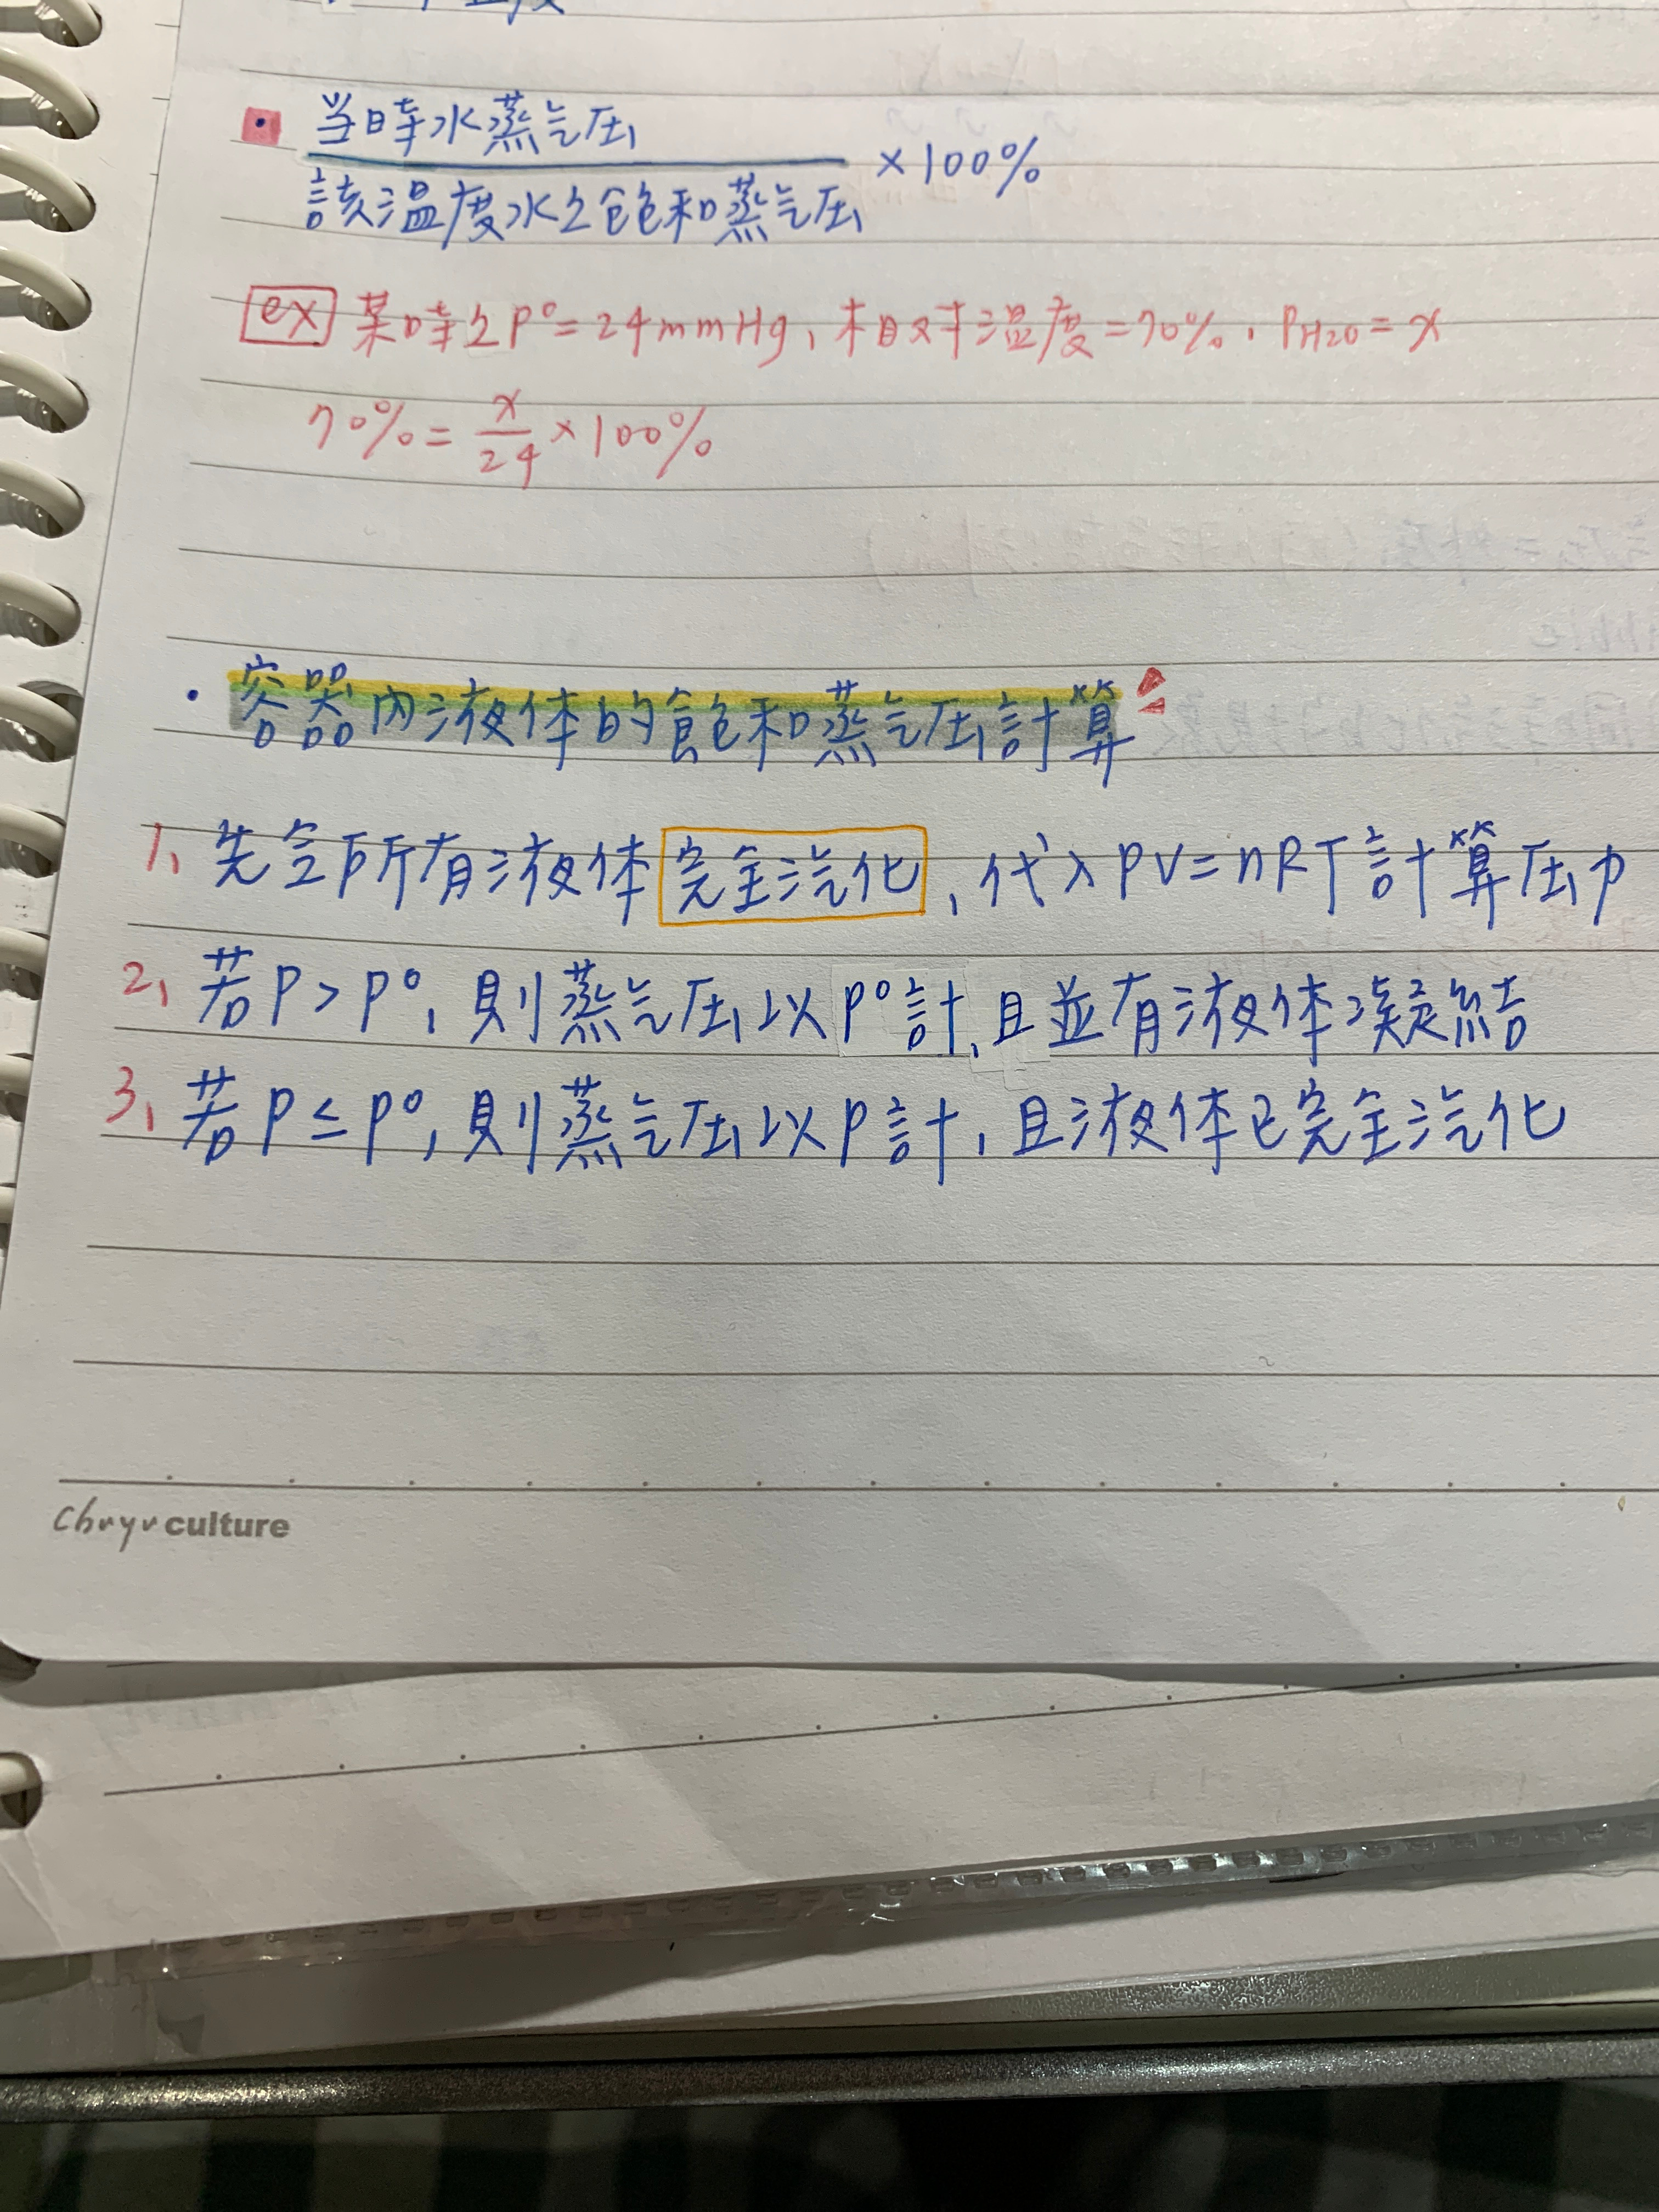 当時水蒸气压
該温度水之飽和蒸气压 ×100%
ex 某時之P°=24mmHg,相对溫度=70%. PH2O=x
70%=x/24×100%
・容器內液体的飽和蒸气压計算
1、先令所有液体完全汽化,代入PV=nRT計算压力
2、若P>P°,則蒸气压以P°計,且並有液体凝結
3、若P≤P°,則蒸气压以P計,且液体已完全汽化
chuyu culture